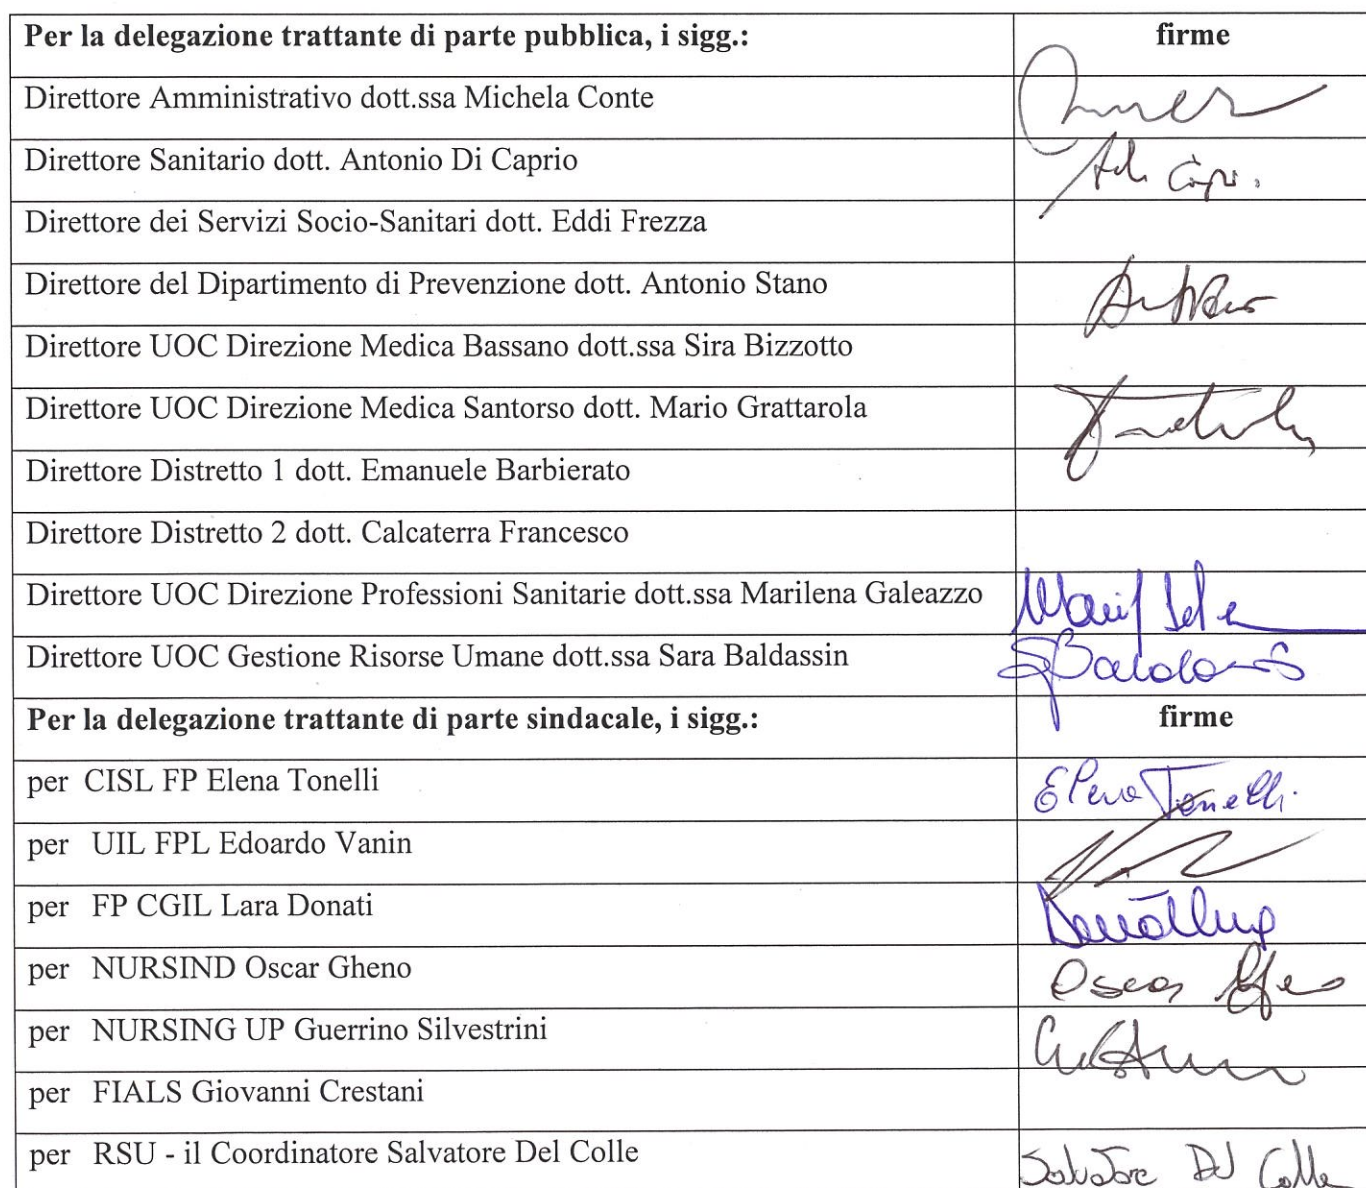 Per la delegazione trattante di parte pubblica, i sigg.: firme
Direttore Amministrativo dott.ssa Michela Conte
Direttore Sanitario dott. Antonio Di Caprio
Direttore dei Servizi Socio-Sanitari dott. Eddi Frezza
Direttore del Dipartimento di Prevenzione dott. Antonio Stano
Direttore UOC Direzione Medica Bassano dott.ssa Sira Bizzotto
Direttore UOC Direzione Medica Santorso dott. Mario Grattarola
Direttore Distretto 1 dott. Emanuele Barbierato
Direttore Distretto 2 dott. Calcaterra Francesco
Direttore UOC Direzione Professioni Sanitarie dott.ssa Marilena Galeazzo
Direttore UOC Gestione Risorse Umane dott.ssa Sara Baldassin
Per la delegazione trattante di parte sindacale, i sigg.: firme
per CISL FP Elena Tonelli Elena Tonelli
per UIL FPL Edoardo Vanin
per FP CGIL Lara Donati
per NURSIND Oscar Gheno Oscar
per NURSING UP Guerrino Silvestrini
per FIALS Giovanni Crestani
per RSU - il Coordinatore Salvatore Del Colle Salvatore Del Colle